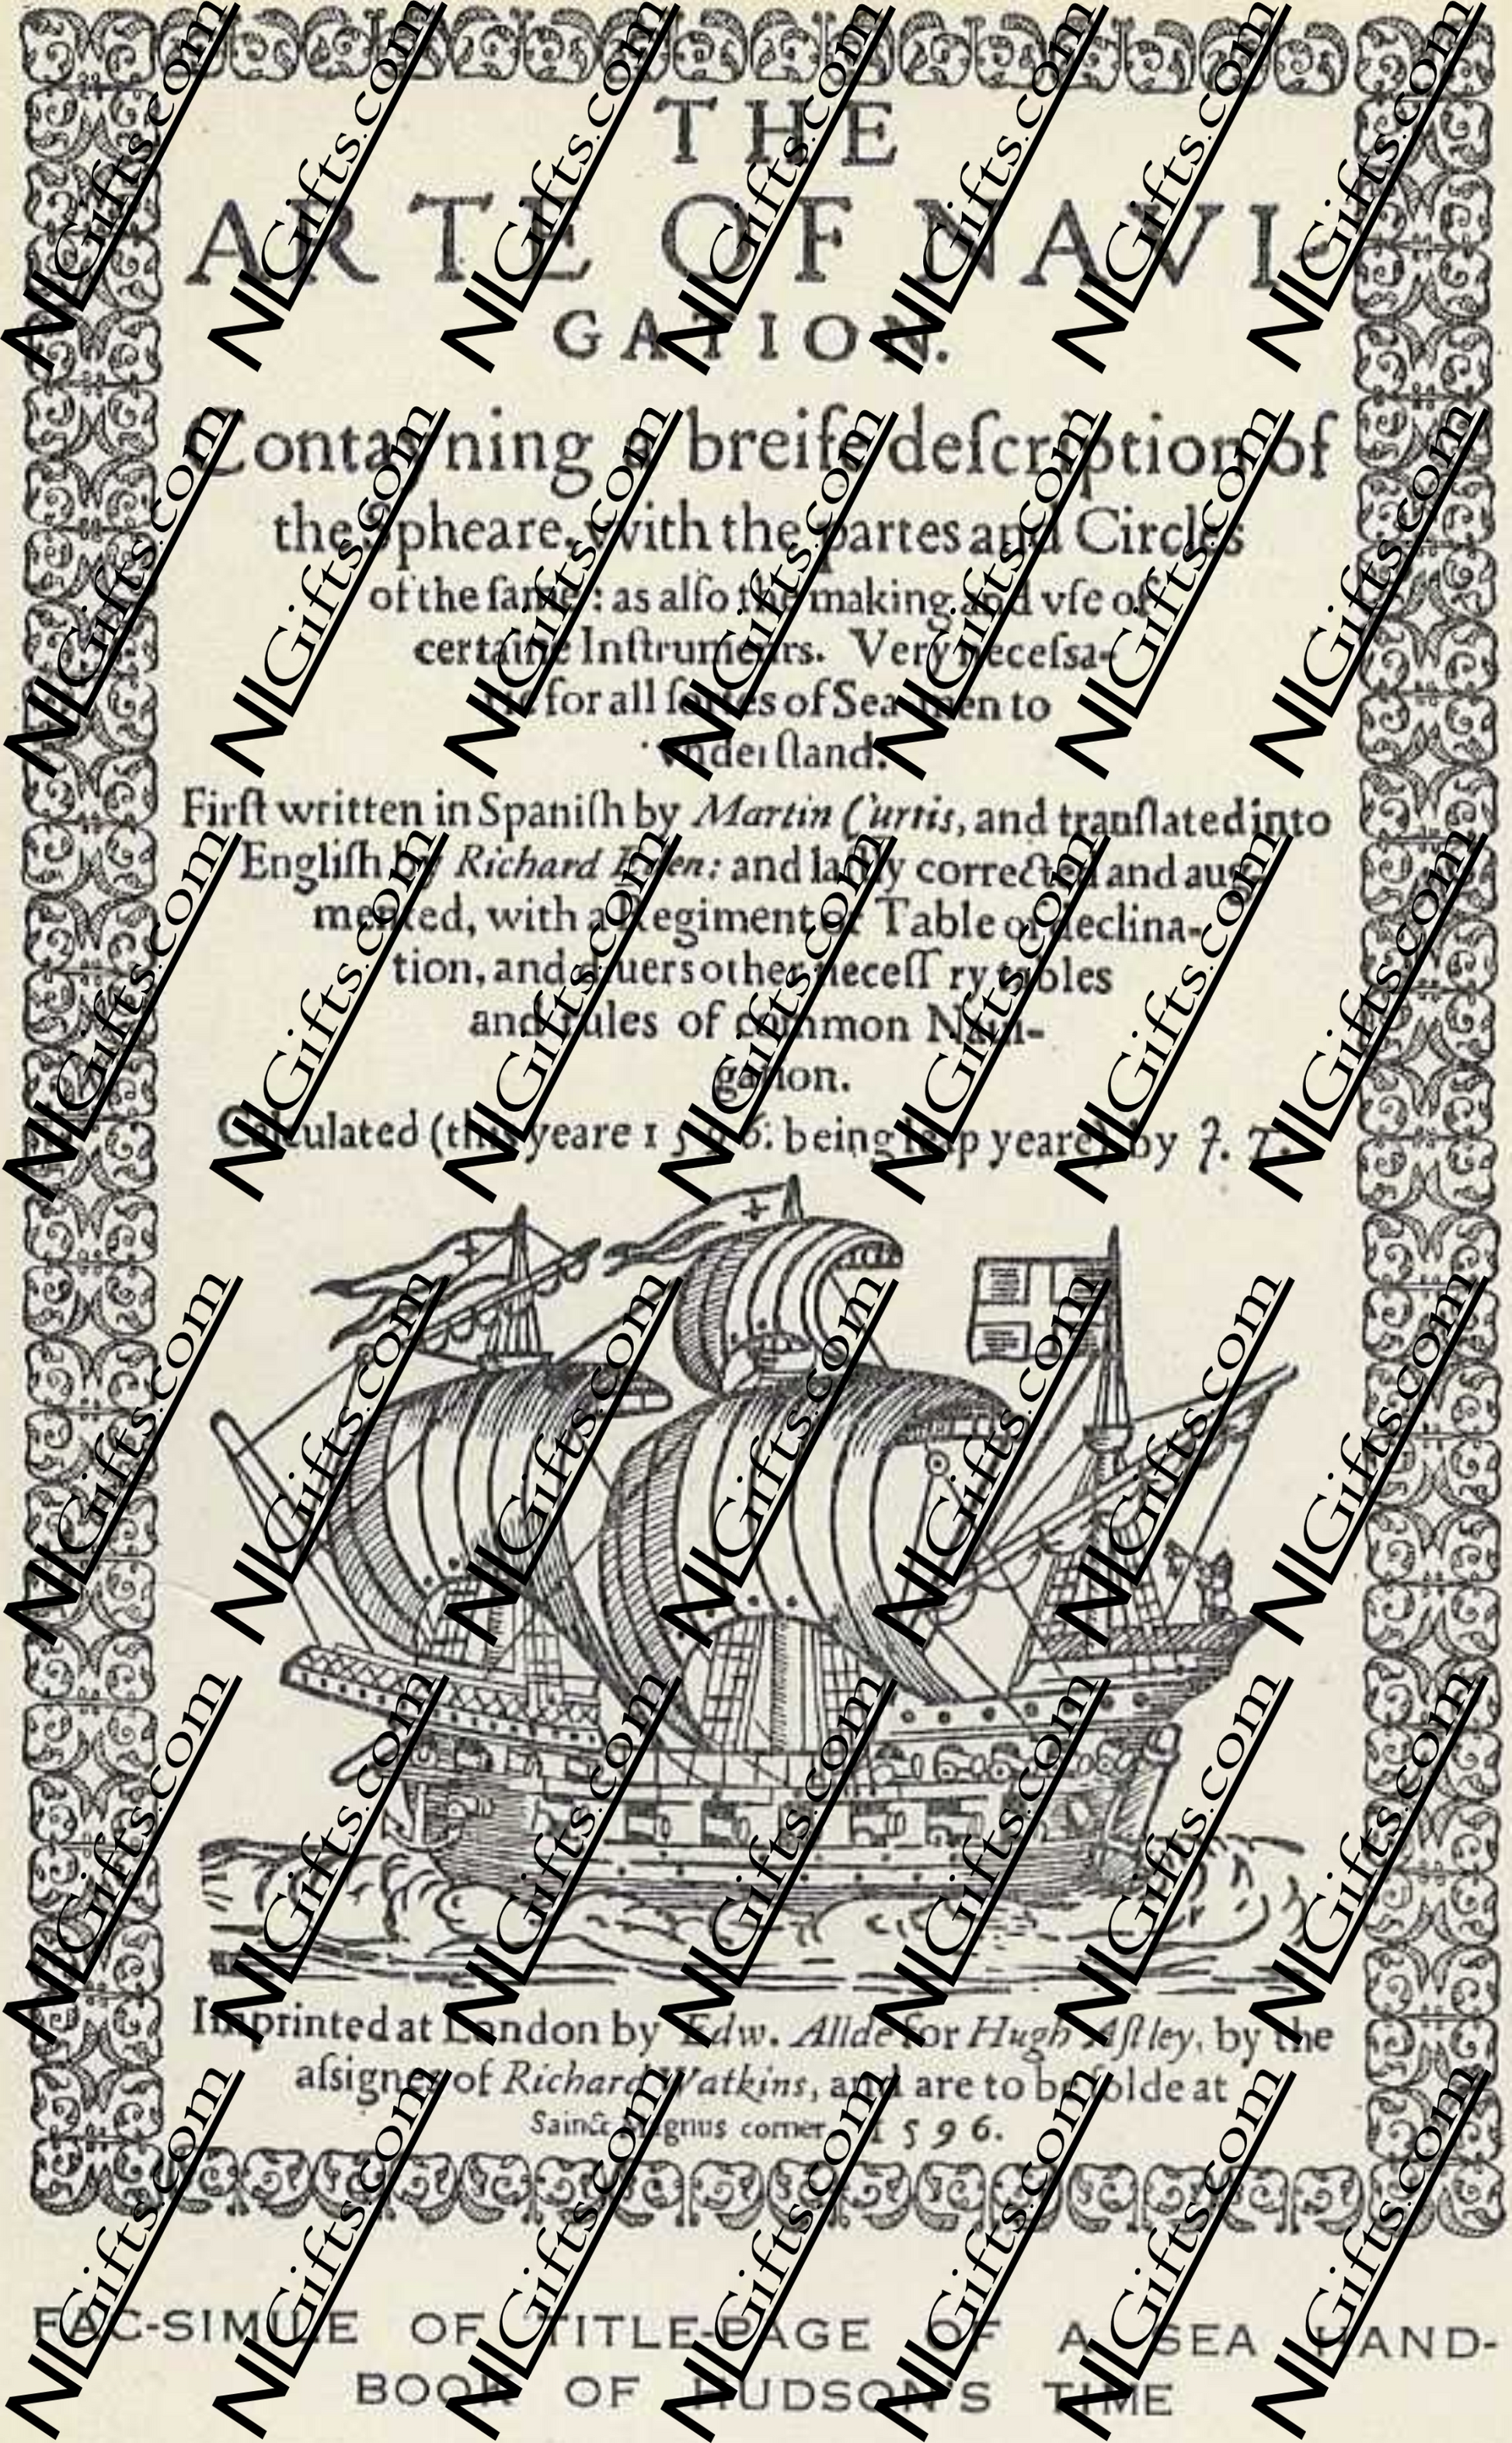 THE
ARTE OF NAVI-
GATION.
Contayning a breife deſcription of
the Spheare, with the partes and Circles
of the ſame: as alſo the making and vſe of
certaine Inſtruments. Very neceſsa-
rie for all ſortes of Sea-men to
vnderſtand.
Firſt written in Spaniſh by Martin Curtis, and tranſlated into
Engliſh by Richard Eden: and laſtly corrected and aug-
mented, with a Regiment or Table of declina-
tion, and diuers other neceſſ ry tables
and rules of common Naui-
gation.
Calculated (this yeare 1596. being leap yeare) by J. T.
Imprinted at London by Edw. Allde for Hugh Aſtley, by the
aſsignes of Richard Watkins, and are to be ſolde at
Sainct Magnus corner. 1596.
FAC-SIMILE OF TITLE-PAGE OF A SEA HAND-
BOOK OF HUDSON'S TIME
NLGifts.com